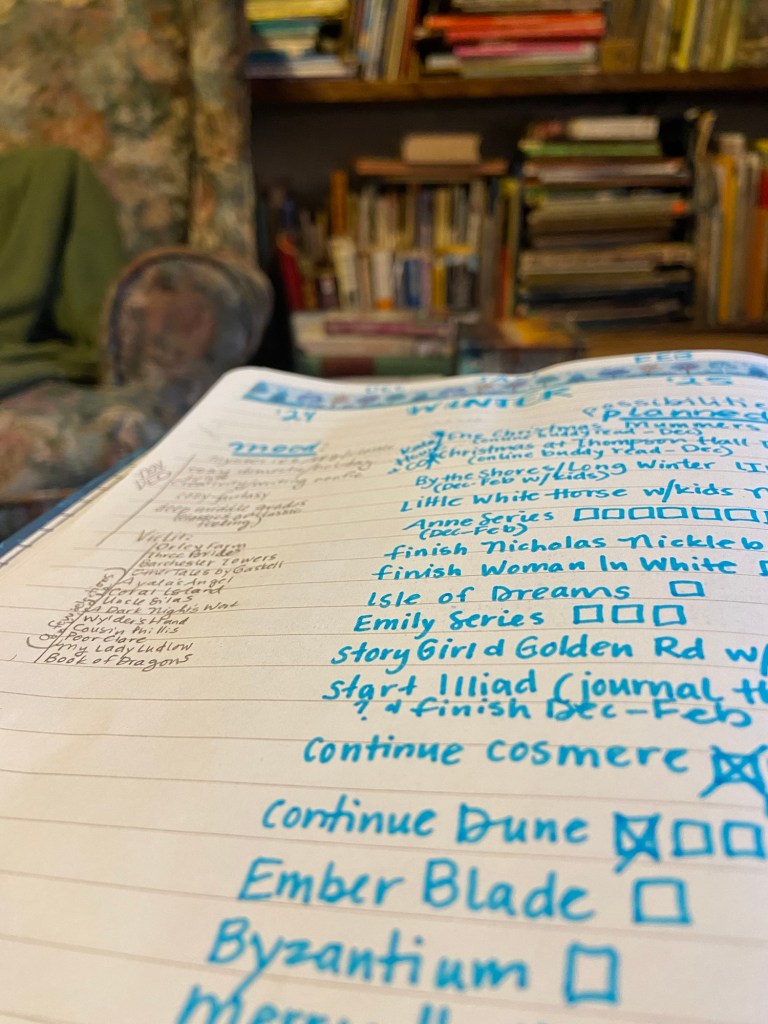 FEB
'24 WINTER '25
Possibilitie
Planned
mood
Christmas Mummers
(online buddy read - Dec)
Christmas at Thompson Hall
(online buddy read - Dec)
By the Shores/Long Winter
(Dec-Feb w/kids)
Little White Horse w/kids
Anne Series
(Dec-Feb)
finish Nicholas Nickleb
finish Woman In White
Isle of Dreams
Emily Series
Story Girl & Golden Rd w/
start Illiad (journal th
? & finish Dec-Feb
continue cosmere
continue Dune
Ember Blade
Byzantium
cozy fantasy
Victlit:
Orley Farm
Three Brides
Barchester Towers
Other Tales by Gaskell
Ayala's Angel
Coral Island
Uncle Silas
A Dark Night's Work
Wylder's Hand
Cousin Phillis
Poor Clare
My Lady Ludlow
Book of Dragons